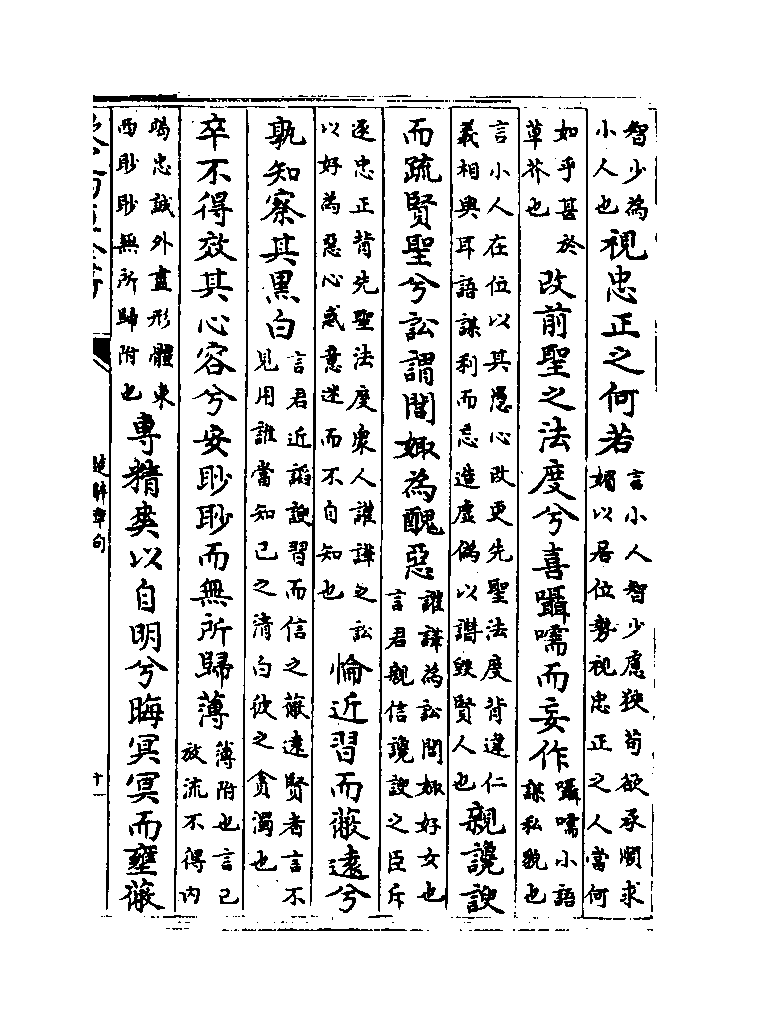 智少為小人也視忠正之何若言小人智少慮狹苟欲承順求媚以居位勢視忠正之人當何
如乎甚於草芥也改前聖之法度兮喜囁嚅而妄作囁嚅小語謀私貌也
言小人在位以其愚心改更先聖法度背違仁義相與耳語謀利而忘造虛偽以譖毀賢人也親讒諛
而疏賢聖兮訟謂閭娵為醜惡讙譁為訟閭娵好女也言君親信讒諛之臣斥
逐忠正背先聖法度衆人讙譁之訟以好為惡心惑意迷而不自知也愉近習而蔽遠兮
孰知察其黑白言君近諂諛習而信之蔽遠賢者言不見用誰當知己之清白彼之貪濁也
卒不得效其心容兮安眇眇而無所歸薄薄附也言己放流不得內
竭忠誠外盡形體東西眇眇無所歸附也專精爽以自明兮晦冥冥而壅蔽
楚辭章句
十一